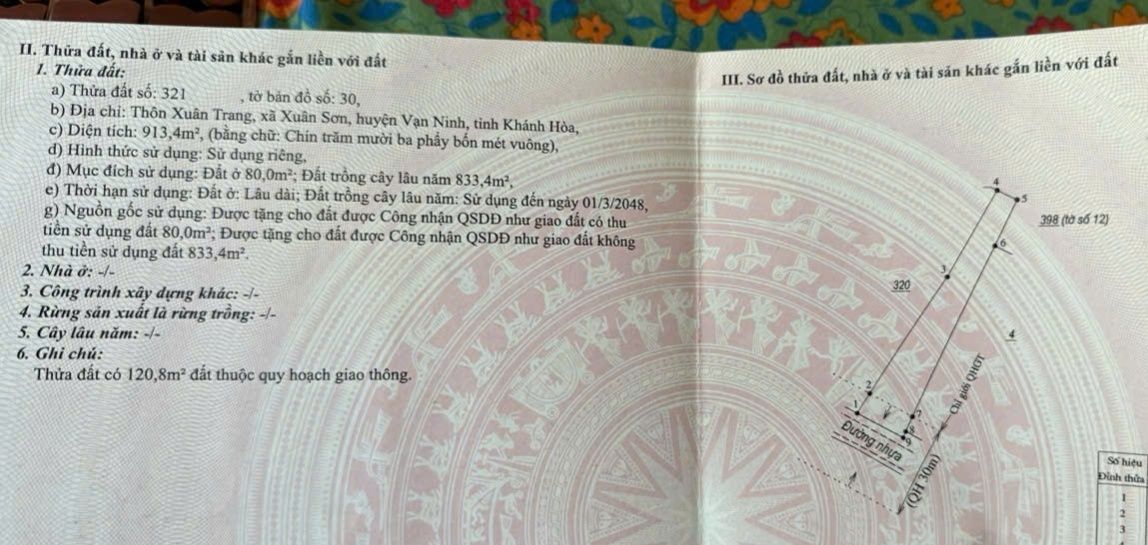 II. Thửa đất, nhà ở và tài sản khác gắn liền với đất
1. Thửa đất:
a) Thửa đất số: 321 , tờ bản đồ số: 30,
b) Địa chỉ: Thôn Xuân Trang, xã Xuân Sơn, huyện Vạn Ninh, tỉnh Khánh Hòa,
c) Diện tích: 913,4m², (bằng chữ: Chín trăm mười ba phẩy bốn mét vuông),
d) Hình thức sử dụng: Sử dụng riêng,
đ) Mục đích sử dụng: Đất ở 80,0m²; Đất trồng cây lâu năm 833,4m²,
e) Thời hạn sử dụng: Đất ở: Lâu dài; Đất trồng cây lâu năm: Sử dụng đến ngày 01/3/2048,
g) Nguồn gốc sử dụng: Được tặng cho đất được Công nhận QSDĐ như giao đất có thu
tiền sử dụng đất 80,0m²; Được tặng cho đất được Công nhận QSDĐ như giao đất không
thu tiền sử dụng đất 833,4m².
2. Nhà ở: -/-
3. Công trình xây dựng khác: -/-
4. Rừng sản xuất là rừng trồng: -/-
5. Cây lâu năm: -/-
6. Ghi chú:
Thửa đất có 120,8m² đất thuộc quy hoạch giao thông.
III. Sơ đồ thửa đất, nhà ở và tài sản khác gắn liền với đất
4
5
398 (tờ số 12)
6
3
320
4
2
Chỉ giới QHGT
1
7
8
9
Đường nhựa
(QH 30m)
Số hiệu
Đỉnh thửa
1
2
3